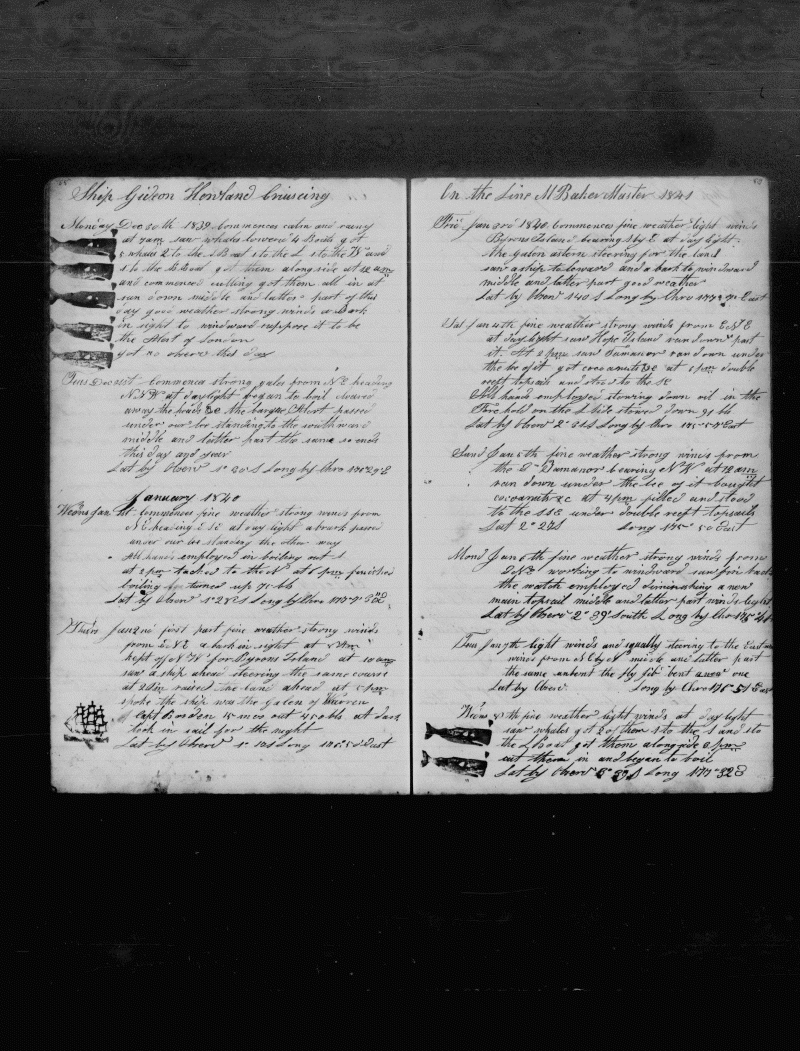 Ship Gideon Howland Cruiseing
Monday Dec 30th 1839 Commences calm and rainy
at 7 am saw whales lowered 4 Boats got
5 whales 2 to the L Boat 1 to the S 1 to the W and
1 to the B Boat got them alongside at 12 am
and commenced cutting got them all in at
sun down middle and latter part of this
day good weather strong winds a Bark
in sight to windward suppose it to be
the of London
got no observ this day
Tues Dec 31st Commences strong gales from NE heading
NNW at daylight began to boil cleared
away the heads &c the barque passed
under our lee standing to the southward
middle and latter part the same so ends
this day and year
Lat by Observ 1° 20 S Long by Chro
January 1840
Wedns Jan 1st Commences fine weather strong winds from
NE heading ESE at day light a bark passed
under our lee standing the other way
All hands employed in boiling out
at 2 pm tacked to the N at 6 pm finished
boiling turned up 75 bbs
Lat by Observ 1° 28 S Long by Chro 177° E
Thurs Jan 2nd first part fine weather strong winds
from ENE a bark in sight at
kept off NW for Byrons Island at 10 am
saw a ship ahead steering the same course
at raised the land ahead at 5 pm
spoke the ship was the Galen of Warren
Capt Borden 15 mos out 450 bbs at dark
took in sail for the night
Lat by Observ 1° S Long East
On the Line M Baker Master 1841
Frid Jan 3rd 1840 Commences fine weather light winds
Byrons Island bearing S by E at day light
the Galen astern steering for the land
saw a ship to leward and a bark to windward
middle and latter part good weather
Lat by Observ 1 40 S Long by Chro East
Sat Jan 4th fine weather strong winds from ENE
at day light saw Hope Island ran down past
it At 2 pm saw Tamanor ran down under
the lee of it got cocoanuts &c at 1 pm double
reeft topsails and stood to the SE
All hands employed stowing down oil in the
Fore hold on the S side stowed down 91 bb
Lat by Observ 2° 31 S Long by Chro East
Sund Jan 5th fine weather strong winds from
the E Tamanor bearing NW at 12 am
ran down under the Lee of it bought
cocoanuts &c at 4 pm filled and stood
to the SSE under double reeft topsails
Lat 2° 27 S Long 175° 50 East
Mond Jan 6th fine weather strong winds from
ENE working to windward saw five backs
the watch employed diminishing a new
main topsail middle and latter part winds light
Lat by Observ 2° 39' South Long by Chro
Tues Jan 7th light winds and squally steering to the East
winds from NE by N middle and latter part
the same unbent the fly jib bent a new one
Lat by Observ Long by Chro 176° 51 East
Wedns 8th fine weather light winds at day light
saw whales got 2 of them 1 to the S and 1 to
the L boat got them alongside 2 pm
cut them in and began to boil
Lat by Observ 3° 39 S Long 177° 32 E